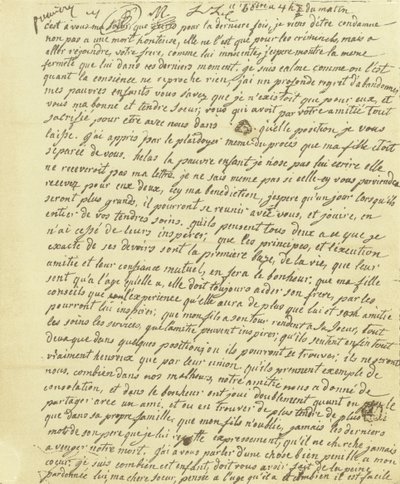 ce 16 8bre a 4 h ½ du matin
c'est a vous ma soeur que j'ecris pour la derniere fois, je viens d'etre condamnée
non pas a une mort honteuse, elle ne l'est que pour les criminels, mais a
aller rejoindre votre frere, comme lui innocente, j'espere montrer la meme
fermeté que lui dans ses derniers moments. je suis calme comme on l'est
quand la conscience ne reproche rien, j'ai un profond regret d'abandonner
mes pauvres enfants vous savez que je n'existoit que pour eux, et
vous ma bonne et tendre soeur, vous qui avez par votre amitié tout
sacrifié pour être avec nous dans quelle position je vous
laisse. j'ai appris par le plaidoyer meme du procès que ma fille etoit
separée de vous, helas la pauvre enfant je n'ose pas lui ecrire elle
ne receveroit pas ma lettre, je ne sais meme pas si celle-cy vous parviendra
recevez pour eux deux, icy ma benediction, j'espere qu'un jour lorsqu'ils
seront plus grands, il pourront se reunir avec vous, et jouire, en
entier de vos tendres soins, qu'ils pensent tous deux a ce que je
n'ai cessé de leurs inspirer, que les principes, et l'execution
exacte de ses devoirs sont la premiere base, de la vie, que leur
amitié et leur confiance mutuel, en fera le bonheur, que ma fille
sent qu'a l'age qu'elle a, elle doit toujours aider son frere, par les
conseils que l'experience qu'elle aura de plus que lui et son amitié
pourront lui inspirer, que mon fils a son tour rendent a sa soeur, tout
les soins les services, que l'amitié peuvent inspirer, qu'ils sentent enfin tout
deux que dans quelques positions ou ils pourront se trouver, ils ne seront
vraiment heureux que par leur union. qu'ils prennent exemple de
nous, combien dans nos malheurs, notre amitié nous a donné de
consolation, et dans le bonheur on jouit doublement quand on peut le
partager avec un ami, et ou en trouver de plus tendre de plus
que dans sa propre famille, que mon fils n'oublie, jamais les derniers
mots de son pere que je lui repette expressement, qu'il ne cherche jamais
a venger notre mort. j'ai a vous parler d'une chose bien penible a mon
coeur, je sais combien cet enfant, doit vous avoir fait de la peine
pardonnez lui, ma chere soeur, pensez a l'age qu'il a et combien il est facile